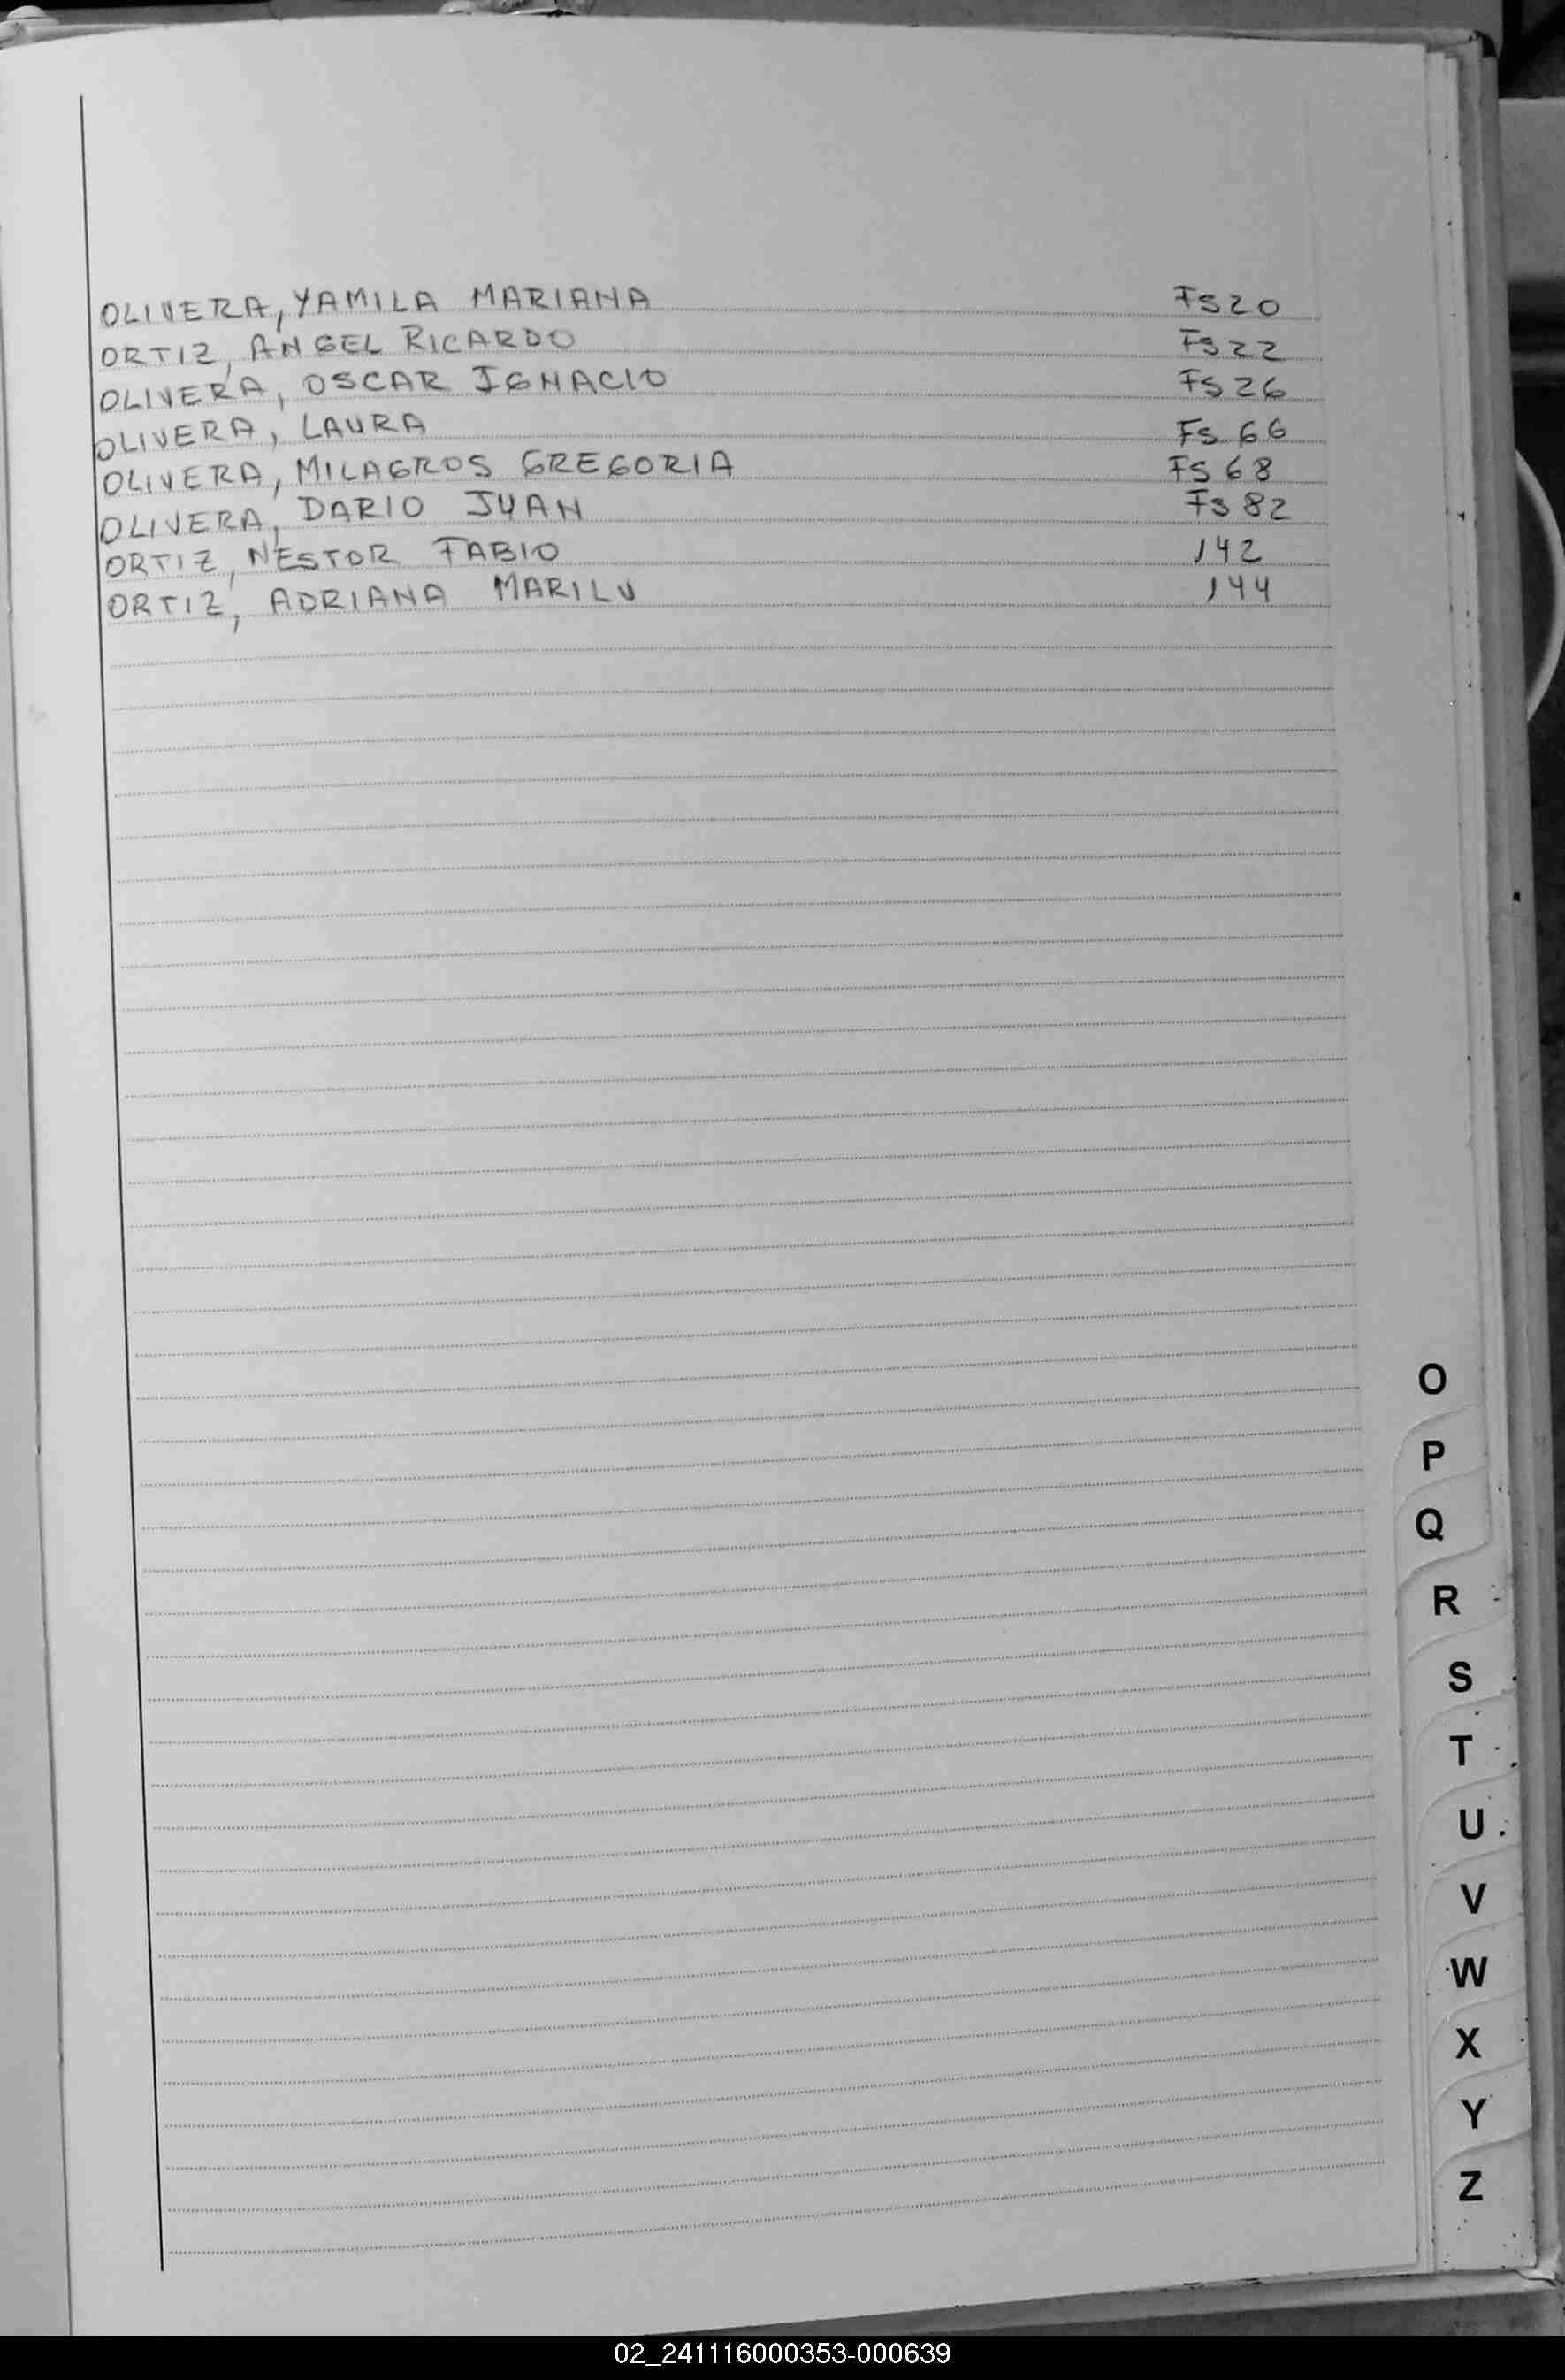 OLIVERA, YAMILA MARIANA FS20
ORTIZ, ANGEL RICARDO FS22
OLIVERA, OSCAR IGNACIO FS26
OLIVERA, LAURA FS 66
OLIVERA, MILAGROS GREGORIA FS 68
OLIVERA, DARIO JUAN FS 82
ORTIZ, NESTOR FABIO 142
ORTIZ, ADRIANA MARILU 144
O
P
Q
R
S
T
U
V
W
X
Y
Z
02_241116000353-000639